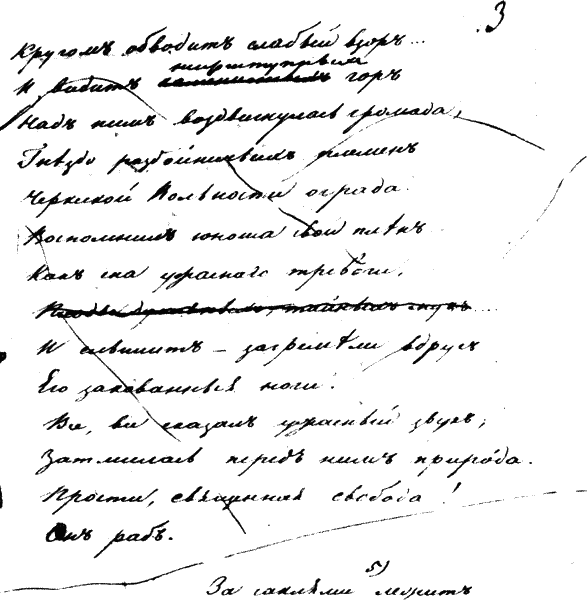 3
Кругомъ обводитъ слабый взоръ...
неприступныхъ
И видитъ горъ
Надъ нимъ воздвигнулась громада,
Гнѣздо разбойничьихъ племенъ
Черкеской Вольности ограда.
Воспомнилъ юноша свой плѣнъ
Какъ сна ужаснаго тревоги,
И слышитъ — загремѣли вдругъ
Его закованныя ноги.
Все, все сказалъ ужасный звукъ;
Затмилась передъ нимъ природа.
Прости, священная свобода!
Онъ рабъ.
5)
За саклями лежитъ